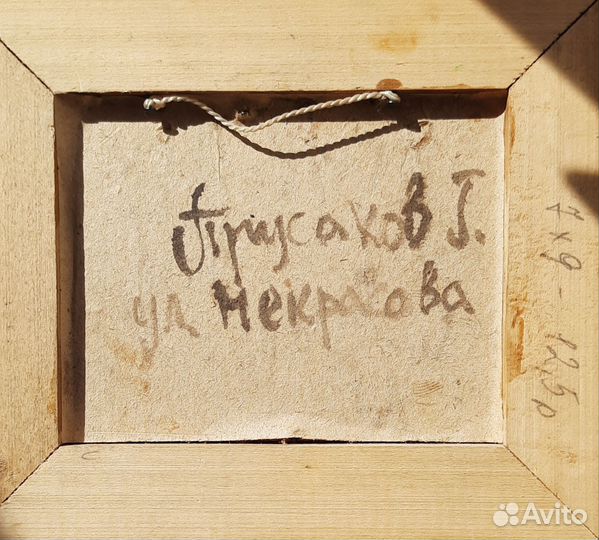 Прусаков Г.
ул Некрасова
7 х 9 - 12,5р
Avito